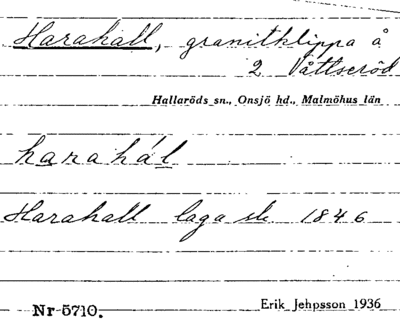 Harahall, granitklippa å
2 Våttseröd
Hallaröds sn., Onsjö hd., Malmöhus län
harahál
Harahall laga sk. 1846
Nr 5710.
Erik Jehpsson 1936